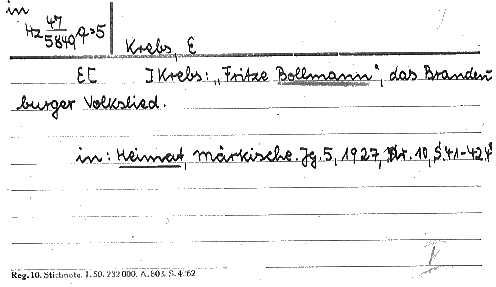 in
Hz 47/5849 q>5
Krebs, E
E[ ] Krebs: „Fritze Bollmann", das Branden=
burger Volkslied.
in: Heimat, märkische. Jg. 5, 1927, Nr. 10, S. 41-42. 4°
Reg. 10. Stichnote. 1. 50. 232 000. A. 803. S. 4/62